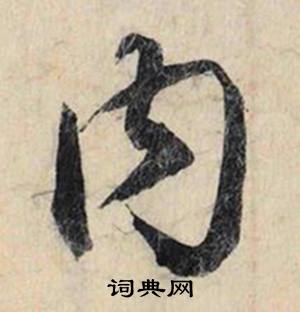 内
词典网